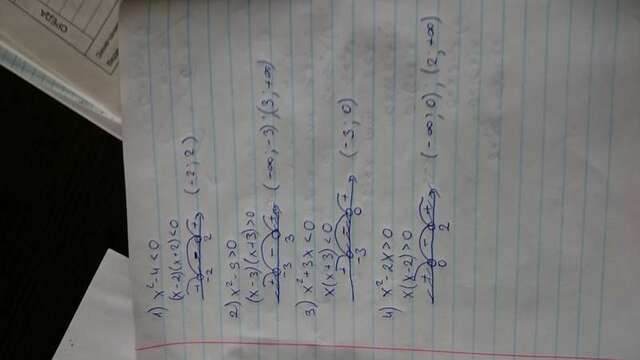 1) x²-4<0
(x-2)(x+2)<0
+ - +
-2 2
(-2; 2)
2) x²-9>0
(x-3)(x+3)>0
+ - +
-3 3
(-∞; -3);(3; +∞)
3) x²+3x<0
x(x+3)<0
+ - +
-3 0
(-3; 0)
4) x²-2x>0
x(x-2)>0
+ - +
0 2
(-∞; 0); (2; +∞)
СРЕДА